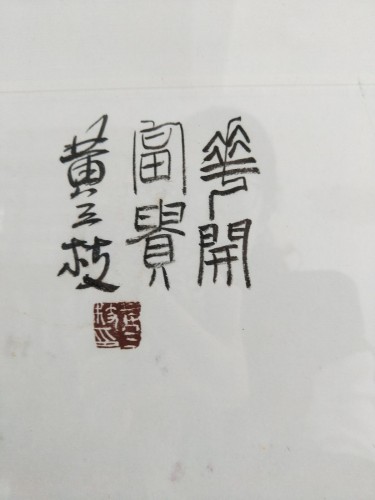 華開
富貴
黄三枝